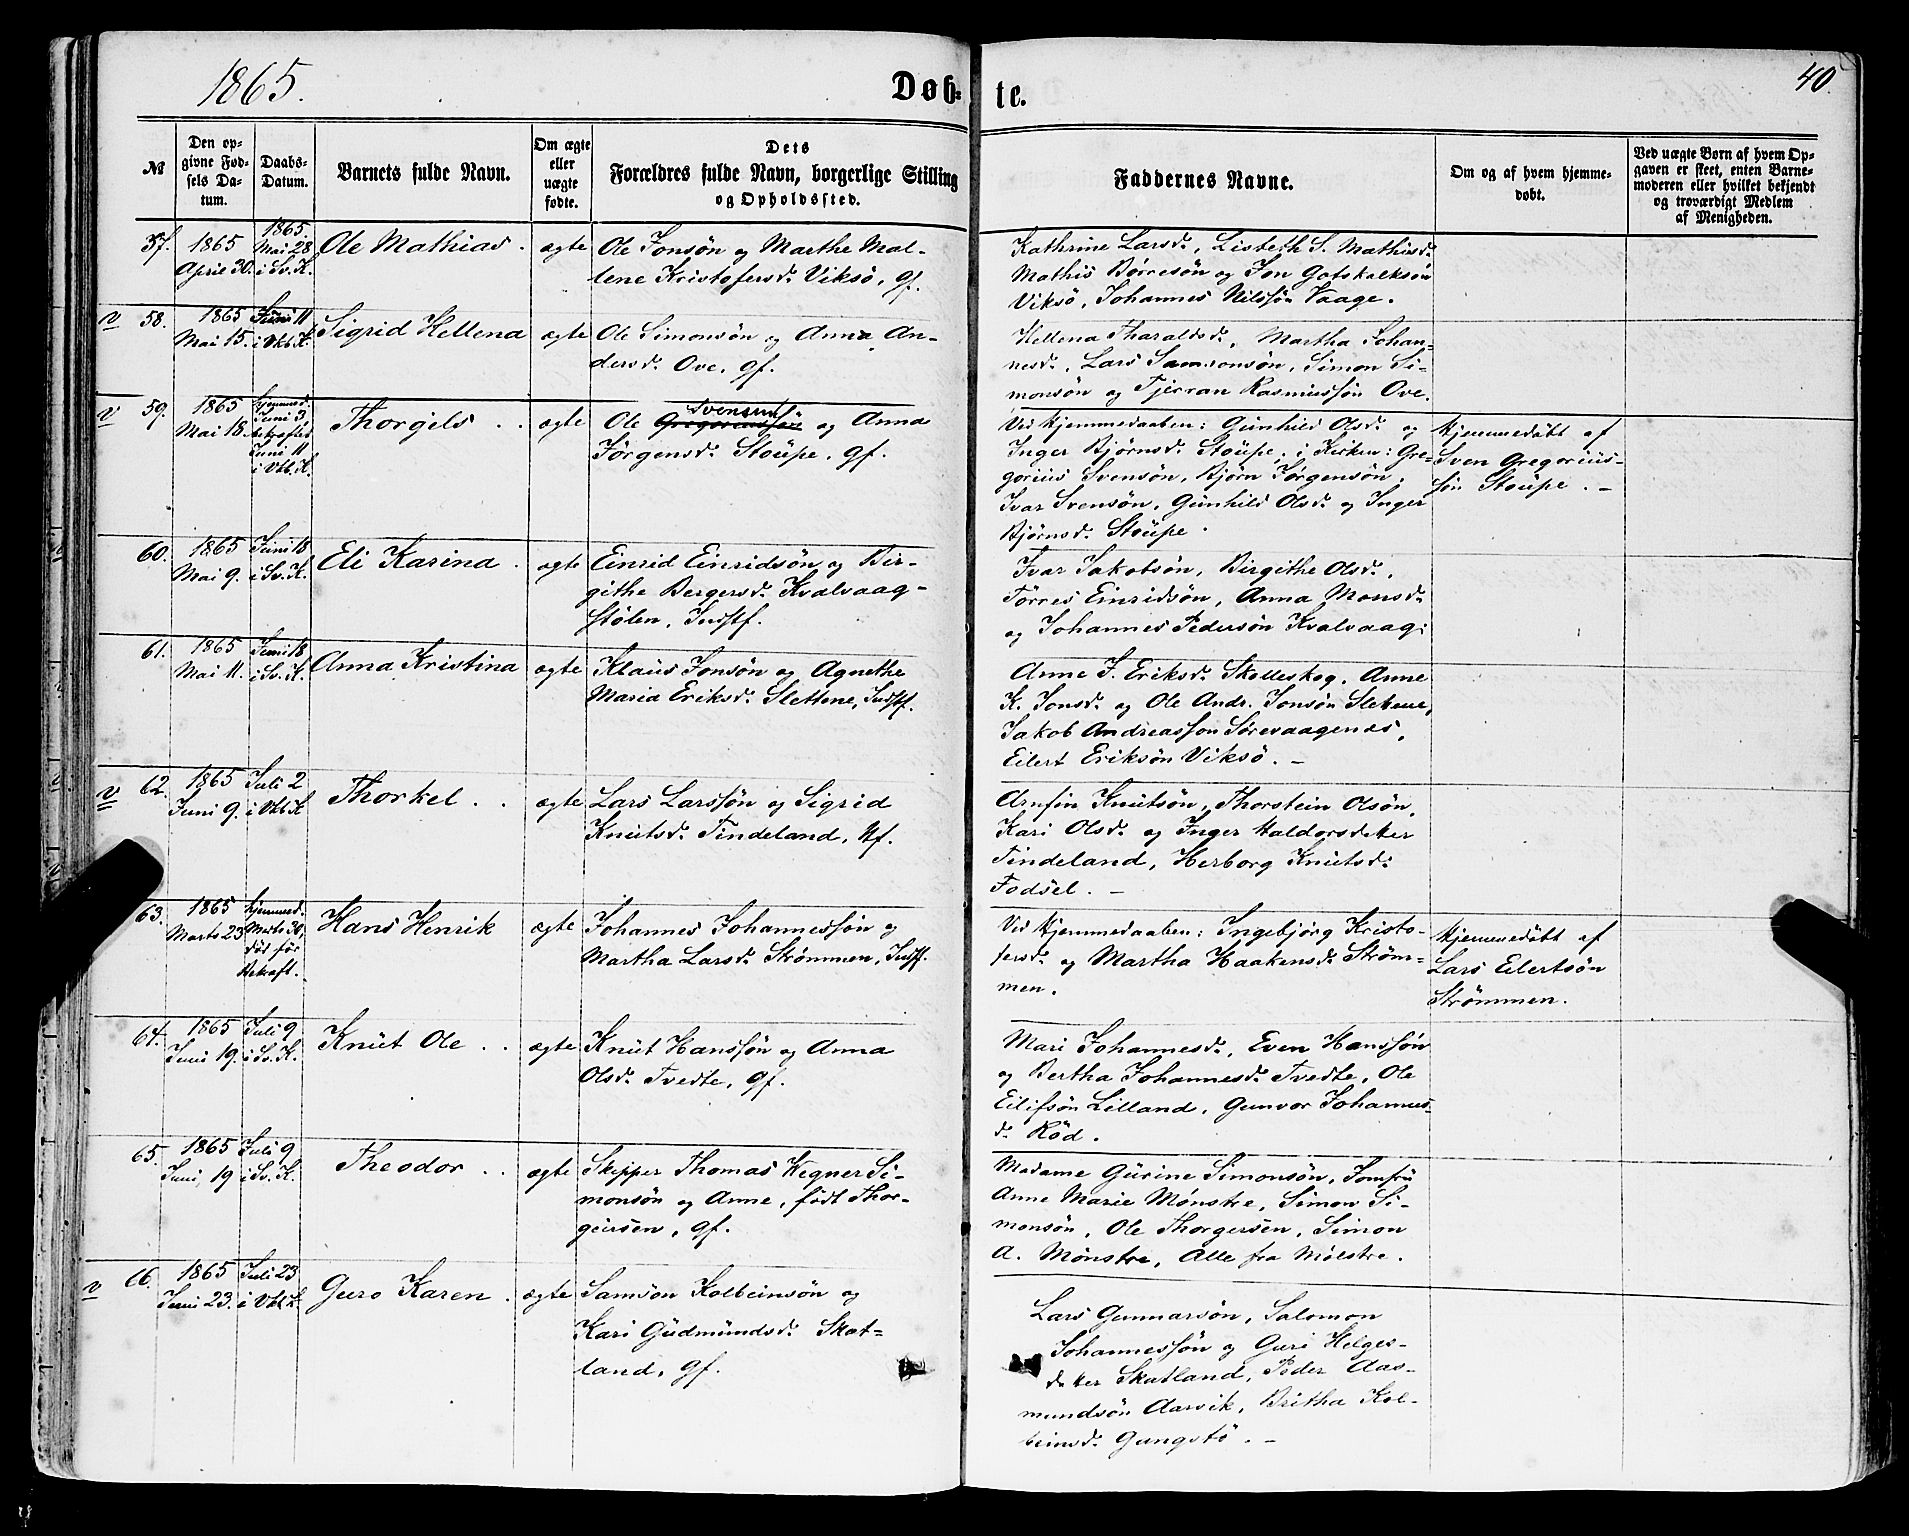 1865.
Døb-
te.
40.
№
Den op-
givne Fød-
sels Da-
tum.
Daabs-
Datum.
Barnets fulde Navn.
Om ægte
eller
uægte
fødte.
Dets
Forældres fulde Navn, borgerlige Stilling
og Opholdssted.
Faddernes Navne.
Om og af hvem hjemme-
døbt.
Ved uægte Børn af hvem Op-
gaven er skeet, enten Barne-
moderen eller hvilket bekjendt
og troværdigt Medlem
af Menigheden.
57.
1865
April 30.
1865.
Mai 28
i Sv. K.
Ole Mathias.
ægte
Ole Jonsøn og Marthe Mal-
lene Kristofersd. Viksö, gf.
Kathrine Larsd., Lisbeth S. Mathisd.
Mathis Børresön og Jon Gotskalksön
Viksö, Johannes Nilssön Vaage.
v 58.
1865
Mai 15.
Juni 11
i Vkb. K.
Sigrid Hellena
ægte
Ole Simonsön og Anna An-
dersd. Ove, gf.
Hellena Tharaldsd., Martha Johan-
nesd., Lars Samsonsön, Simon Si-
monsön og Tjerran Rasmussön Ove.
v 59.
1865
Mai 18.
hjemmed.
Juni 3.
bekræftet
Juni 11
i Vkb. K.
Thorgils . .
ægte
Svensøn
Ole Gregoriussön og Anna
Jörgensd. Stoüpe, gf.
Ved Hjemmedaaben: Günhild Olsd. og
Inger Bjørnsd. Stoüpe; i Kirken: Gre-
gorius Svensön, Bjørn Jørgensön,
Ivar Svensön, Günhild Olsd. og Inger
Bjørnsd. Stoüpe.
Hjemmedöbt af
Sven Gregoriüs-
sön Stoüpe. –
60.
1865
Mai 9.
Juni 18
i Sv. K.
Eli Karina.
ægte
Einrid Einridsön og Bir-
githe Bergersd. Kvalvaag-
stölen, Indstf.
Ivar Jakobsön, Birgithe Olsd.,
Törres Einridsön, Anna Monsd.
og Johannes Pedersön Kvalvaag.
61.
1865
Mai 11.
Juni 18
i Sv. K.
Anna Kristina
ægte
Klaüs Jonsön og Agnethe
Maria Eriksd. Slettene, Indstf.
Anne J. Eriksd. Skolleskog, Anne
K. Jonsd. og Ole Andr. Jonsön Slettene,
Jakob Andreassön Sörevaagenes,
Eilert Eriksön Viksö. –
v 62.
1865
Juni 9.
Juli 2
i Vkb. K.
Thorkel. .
ægte
Lars Larssön og Sigrid
Knütsd. Tindeland, Uf.
Arnfin Knütsön, Thorstein Olsön,
Kari Olsd. og Inger Haldorsdatter
Tindeland, Herborg Knütsd.
Fodsel. –
63.
1865
Marts 23
hjemmed.
Marts 30,
död för
Bekræft.
Hans Henrik
ægte
Johannes Johannessön og
Martha Larsd. Strömmen, Indstf.
Ved Hjemmedaaben: Ingebjörg Kristo-
fersd. og Martha Haakensd. Ström-
men.
Hjemmedöbt af
Lars Eilertsön
Strömmen.
64.
1865
Juni 19.
Juli 9
i Sv. K.
Knüt Ole . .
ægte
Knüt Hanssön og Anna
Olsd. Tvedte, gf.
Mari Johannesd., Even Hanssön
og Bertha Johannesd. Tvedte, Ole
Eilifsön Lilland, Gunvor Johannes-
d. Röd.
65.
1865
Juni 19
Juli 9
i Sv. K.
Theodor . .
ægte
Skipper Thomas Wegner Si-
monsön og Anne, født Thor-
geirsen, gf.
Madame Gürine Simonsön, Jomfrü
Anne Marie Mönstre, Simon Si-
monsön, Ole Thorgersen, Simon
A. Mönstre, Alle fra Mölstre.
v 66.
1865
Juni 23.
Juli 23
i Vkb. K.
Guro Karen.
ægte
Samson Kolbeinsön og
Kari Gudmündsd. Skat-
land, gf.
Lars Gunnarsön, Salomon
Johannessön og Guri Helges-
datter Skatland, Peder Aas-
mundsön Aarvik, Britha Kol-
beinsd. Gungstö. –